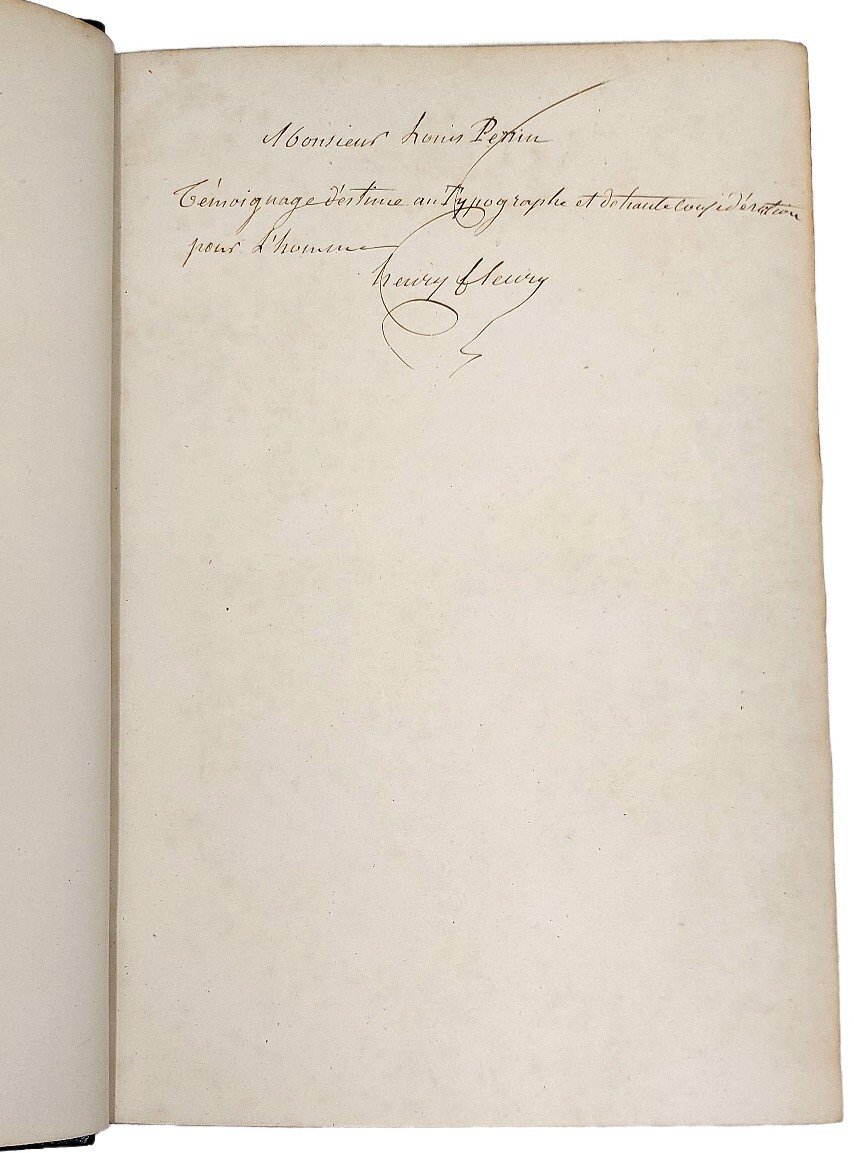 Monsieur Louis Perrin
Témoignage d'estime au Typographe et de haute considération
pour L'homme
henry fleury